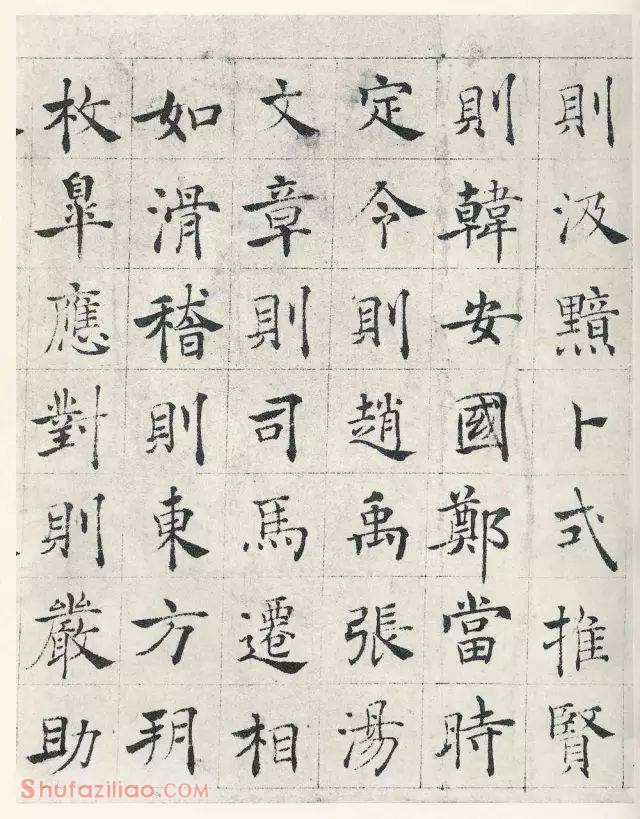 則汲黯卜式推賢
則韓安國鄭當時
定令則趙禹張湯
文章則司馬遷相
如滑稽則東方朔
枚皐應對則嚴助
Shufaziliao.COM